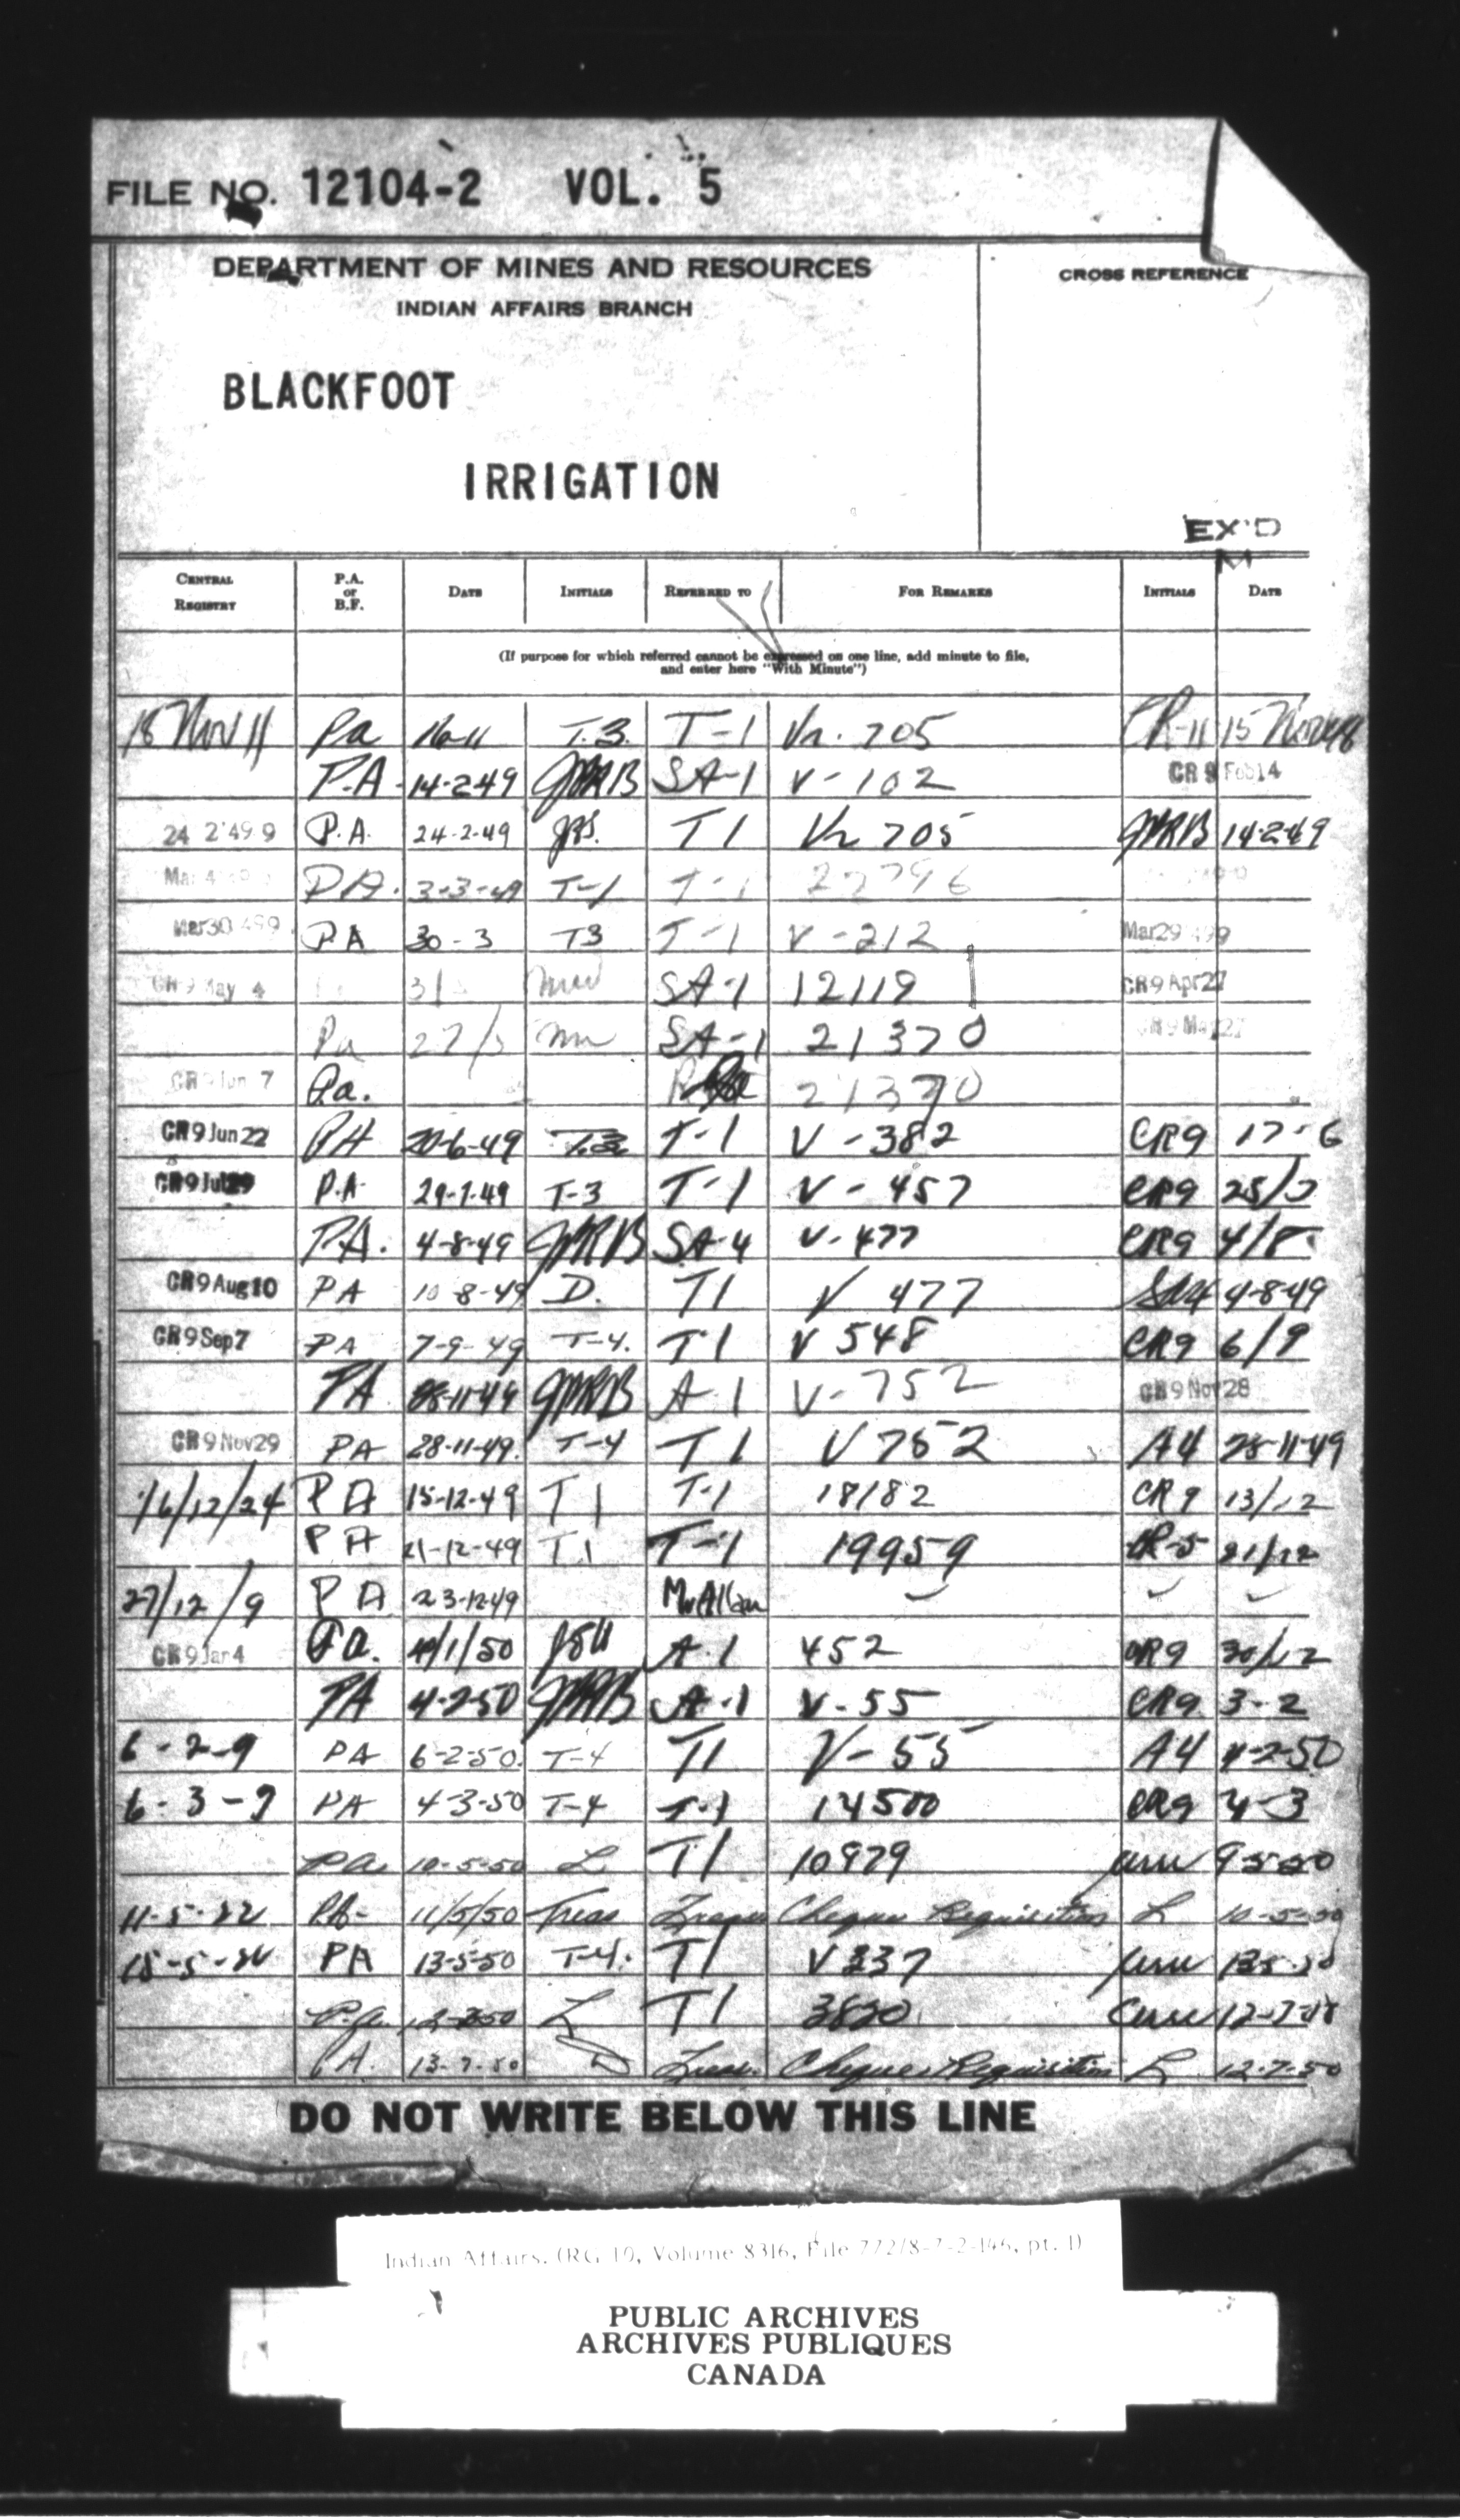 FILE NO. 12104-2 VOL. 5
DEPARTMENT OF MINES AND RESOURCES
CROSS REFERENCE
INDIAN AFFAIRS BRANCH
BLACKFOOT
IRRIGATION
EX'D
M
CENTRAL REGISTRY P.A. or B.F. DATE INITIALS REFERRED TO FOR REMARKS INITIALS DATE
(If purpose for which referred cannot be expressed on one line, add minute to file,
and enter here "With Minute")
18 Nov 11 Pa 16-11 T.3. T-1 Vr. 705 CR-11 15 Nov 48
P.A. 14-2-49 JMRB SA-1 V-102 CR 9 Feb 14
24 2 '49 9 P.A. 24-2-49 T1 Vr 705 JMRB 14-2-49
Mar 4 P.A. 3-3-49 T-1 T-1 22796
Mar 30 49 9 PA 30-3 T3 T-1 V-212 Mar 29
CR 9 May 4 SA-1 12119 CR 9 Apr 27
Pa 27/5 SA-1 21370 CR 9 May 27
CR 9 Jun 7 Pa. 21370
CR 9 Jun 22 PA 20-6-49 T.3 T-1 V-382 CR9 17-6
CR 9 Jul 29 P.A. 29-7-49 T-3 T-1 V-457 CR9 25/7
P.A. 4-8-49 JMRB SA-4 V-477 CR9 4/8
CR 9 Aug 10 PA 10-8-49 D. T1 V 477 SA4 4-8-49
CR 9 Sep 7 PA 7-9-49 T-4. T-1 V 548 CR9 6/9
PA 28-11-49 JMRB A-1 V-752 CR 9 Nov 28
CR 9 Nov 29 PA 28-11-49. T-4 T1 V 752 A4 28-11-49
16/12/24 PA 15-12-49 T1 T-1 18182 CR9 13/12
PA 21-12-49 T1 T-1 19959 CR-5 21/12
27/12/9 PA 23-12-49 Mr Allan
CR 9 Jan 4 Pa. 4/1/50 A-1 452 CR9 30/12
PA 4-2-50 JMRB A-1 V-55 CR9 3-2
6-2-9 PA 6-2-50. T-4 T1 V-55 A4 4-2-50
6-3-9 PA 4-3-50 T-4 T-1 14500 CR9 4-3
Pa. 10-5-50 L T1 10979 9-5-50
11-5-22 PA- 11/5/50 Treas Treas Cheque Requisition L 10-5-50
15-5-22 PA 13-5-50 T-4. T1 V 337 13-5-50
P.a. T1 3820
P.A. 13-7-50 Treas. Cheque Requisition L 12-7-50
DO NOT WRITE BELOW THIS LINE
Indian Affairs. (RG 10, Volume 8316, File 772/8-7-2-146, pt. 1)
PUBLIC ARCHIVES
ARCHIVES PUBLIQUES
CANADA